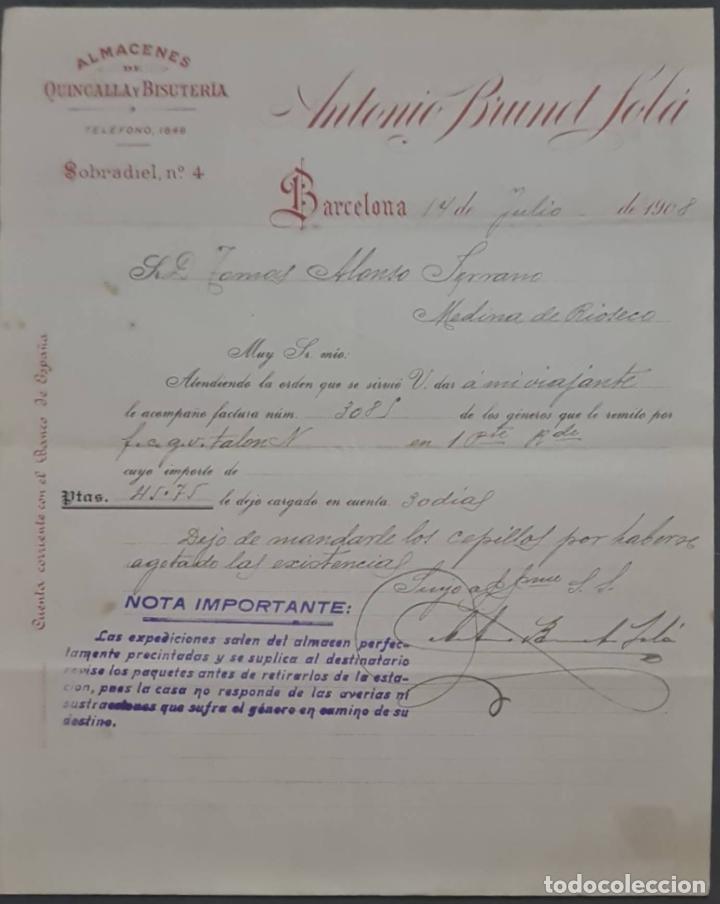 ALMACENES
DE
QUINCALLA Y BISUTERÍA
TELÉFONO, 1848
Sobradiel, n.º 4
Antonio Brunet Solá
Barcelona 14 de Julio de 1908
Sr. D. Tomas Alonso Serrano
Medina de Rioseco
Muy Sr. mío:
Atendiendo la orden que se sirvió V. dar á mi viajante
le acompaño factura núm. 3085 de los géneros que le remito por
f. c. g. v. talon N en 1 Pte
cuyo importe de
Ptas. 45.75 le dejo cargado en cuenta. 30 dias
Dejo de mandarle los cepillos por haberse
agotado las existencias
Suyo affmo S. S.
Cuenta corriente con el Banco de España
NOTA IMPORTANTE:
Las expediciones salen del almacen perfec-
tamente precintadas y se suplica al destinatario
revise los paquetes antes de retirarlos de la esta-
cion, pues la casa no responde de las averias ni
sustracciones que sufra el género en camino de su
destino.
todocoleccion